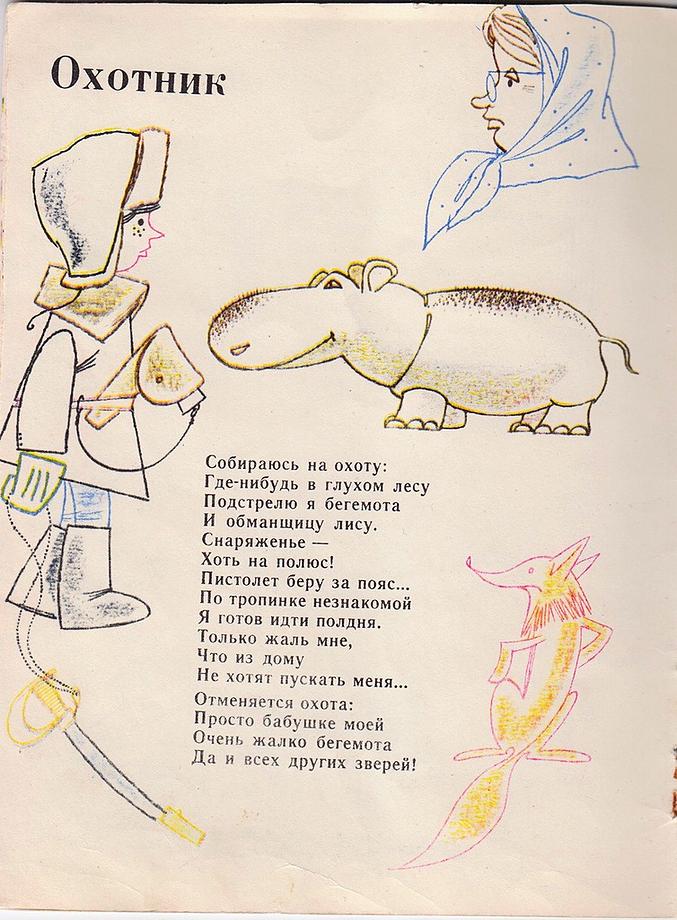 Охотник
Собираюсь на охоту:
Где-нибудь в глухом лесу
Подстрелю я бегемота
И обманщицу лису.
Снаряженье —
Хоть на полюс!
Пистолет беру за пояс...
По тропинке незнакомой
Я готов идти полдня.
Только жаль мне,
Что из дому
Не хотят пускать меня...
Отменяется охота:
Просто бабушке моей
Очень жалко бегемота
Да и всех других зверей!